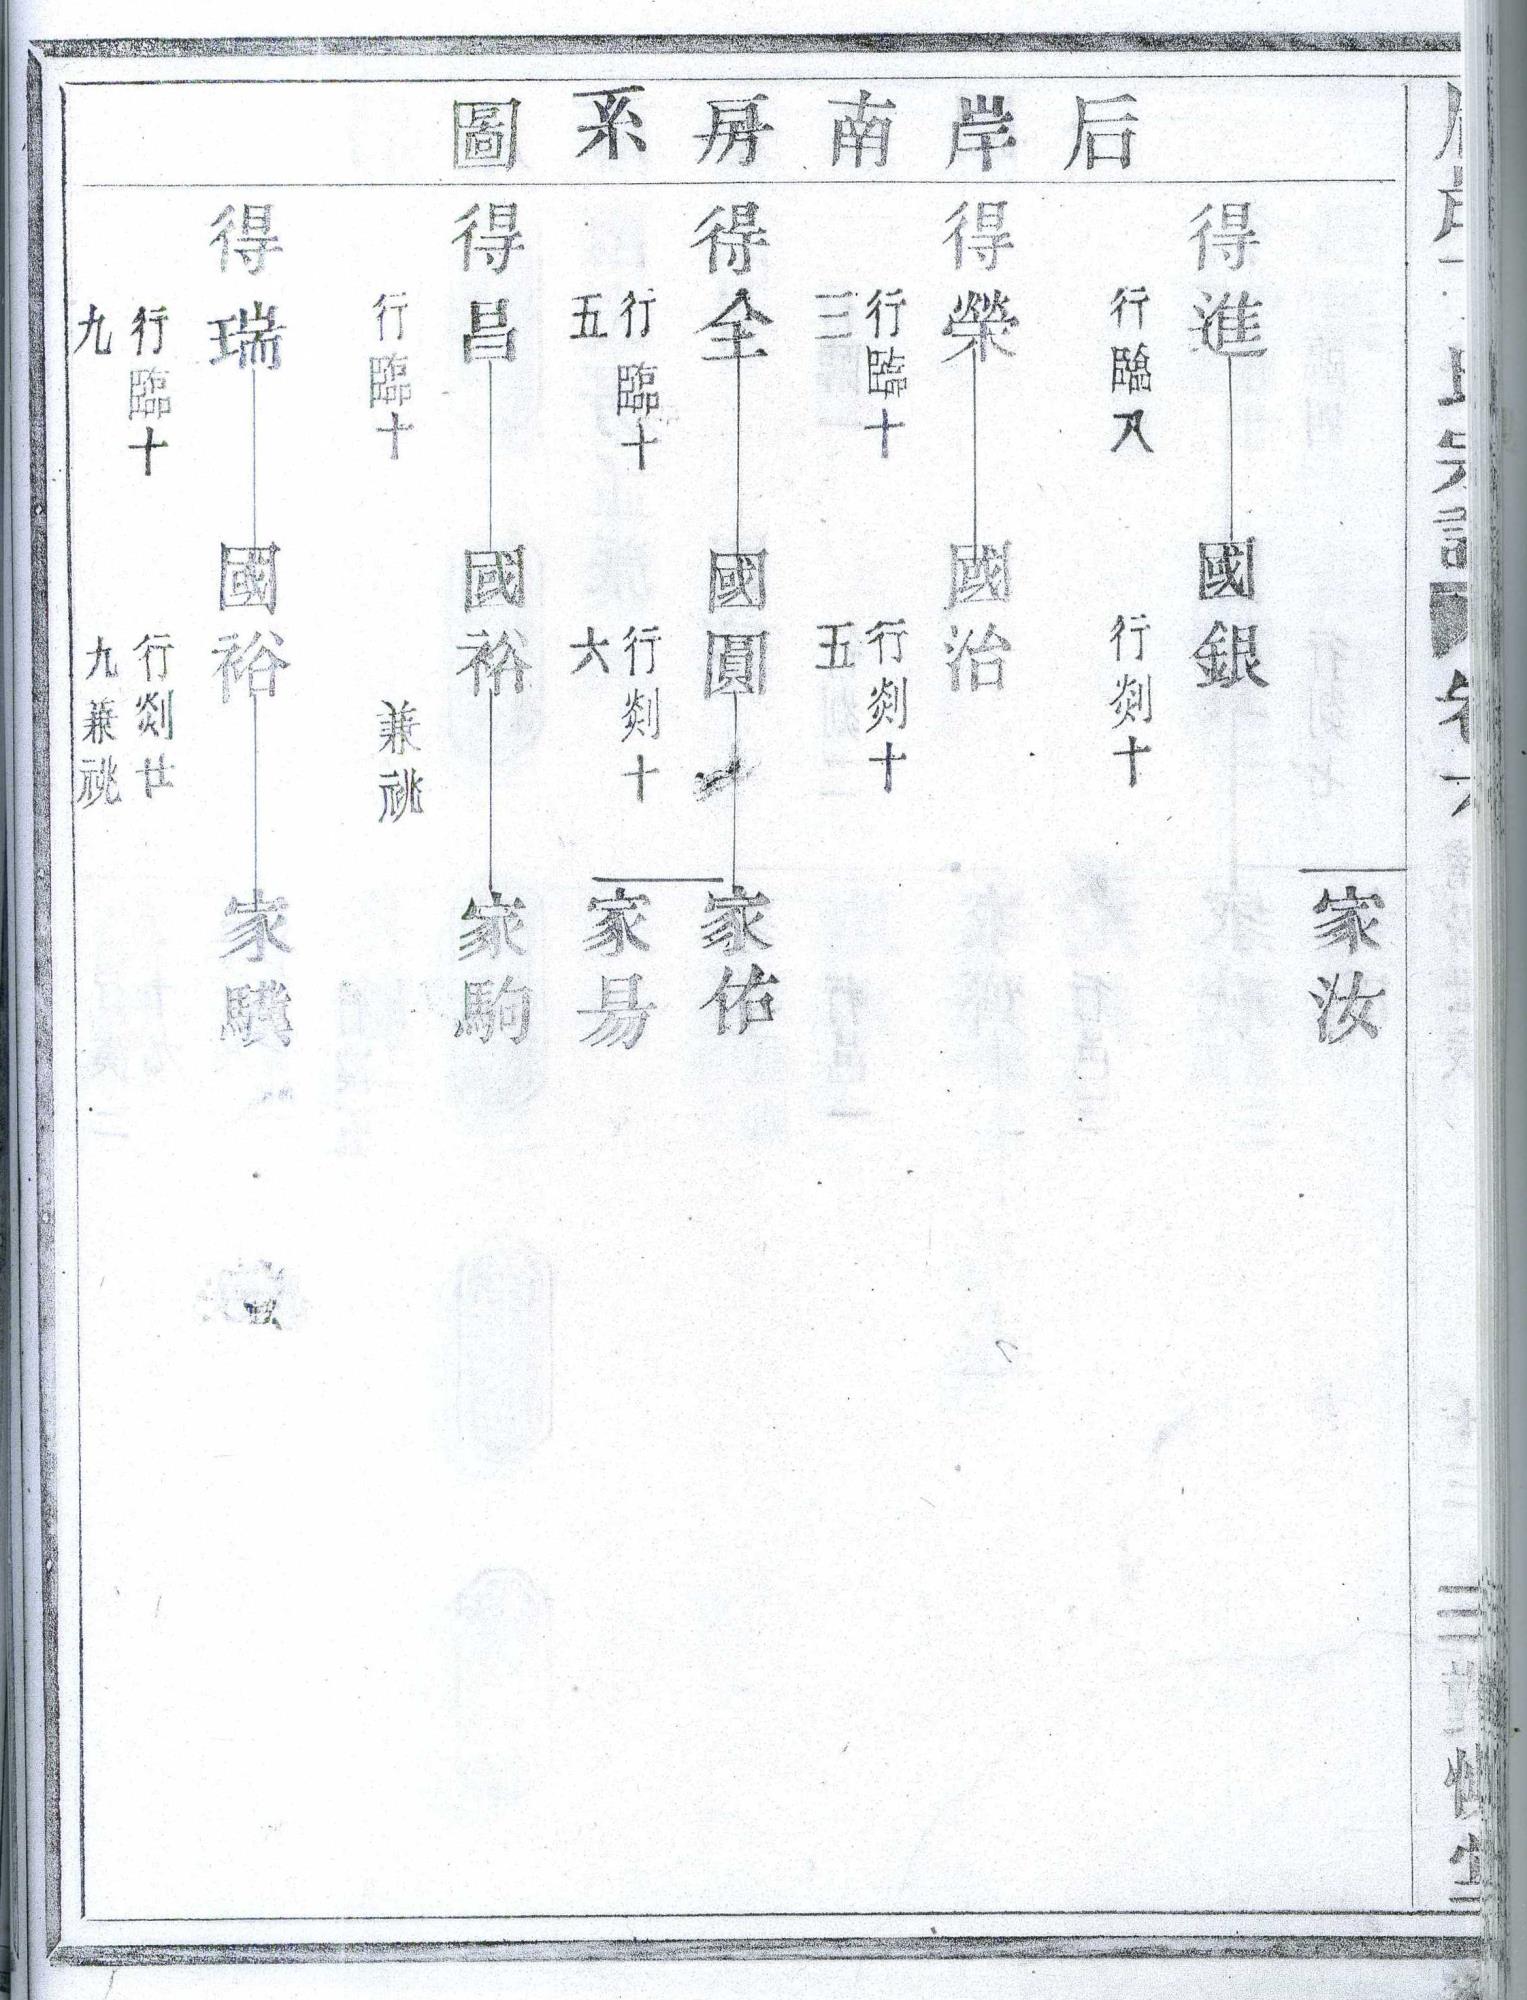 后岸南房系圖
家汝
得進
行臨八
國銀
行剡十
得榮
行臨十
三
國治
行剡十
五
得全
行臨十
五
國圓
行剡十
六
家佑
家易
得昌
行臨十
國裕
兼祧
家駒
得瑞
行臨十
九
國裕
行剡廿
九兼祧
家驥